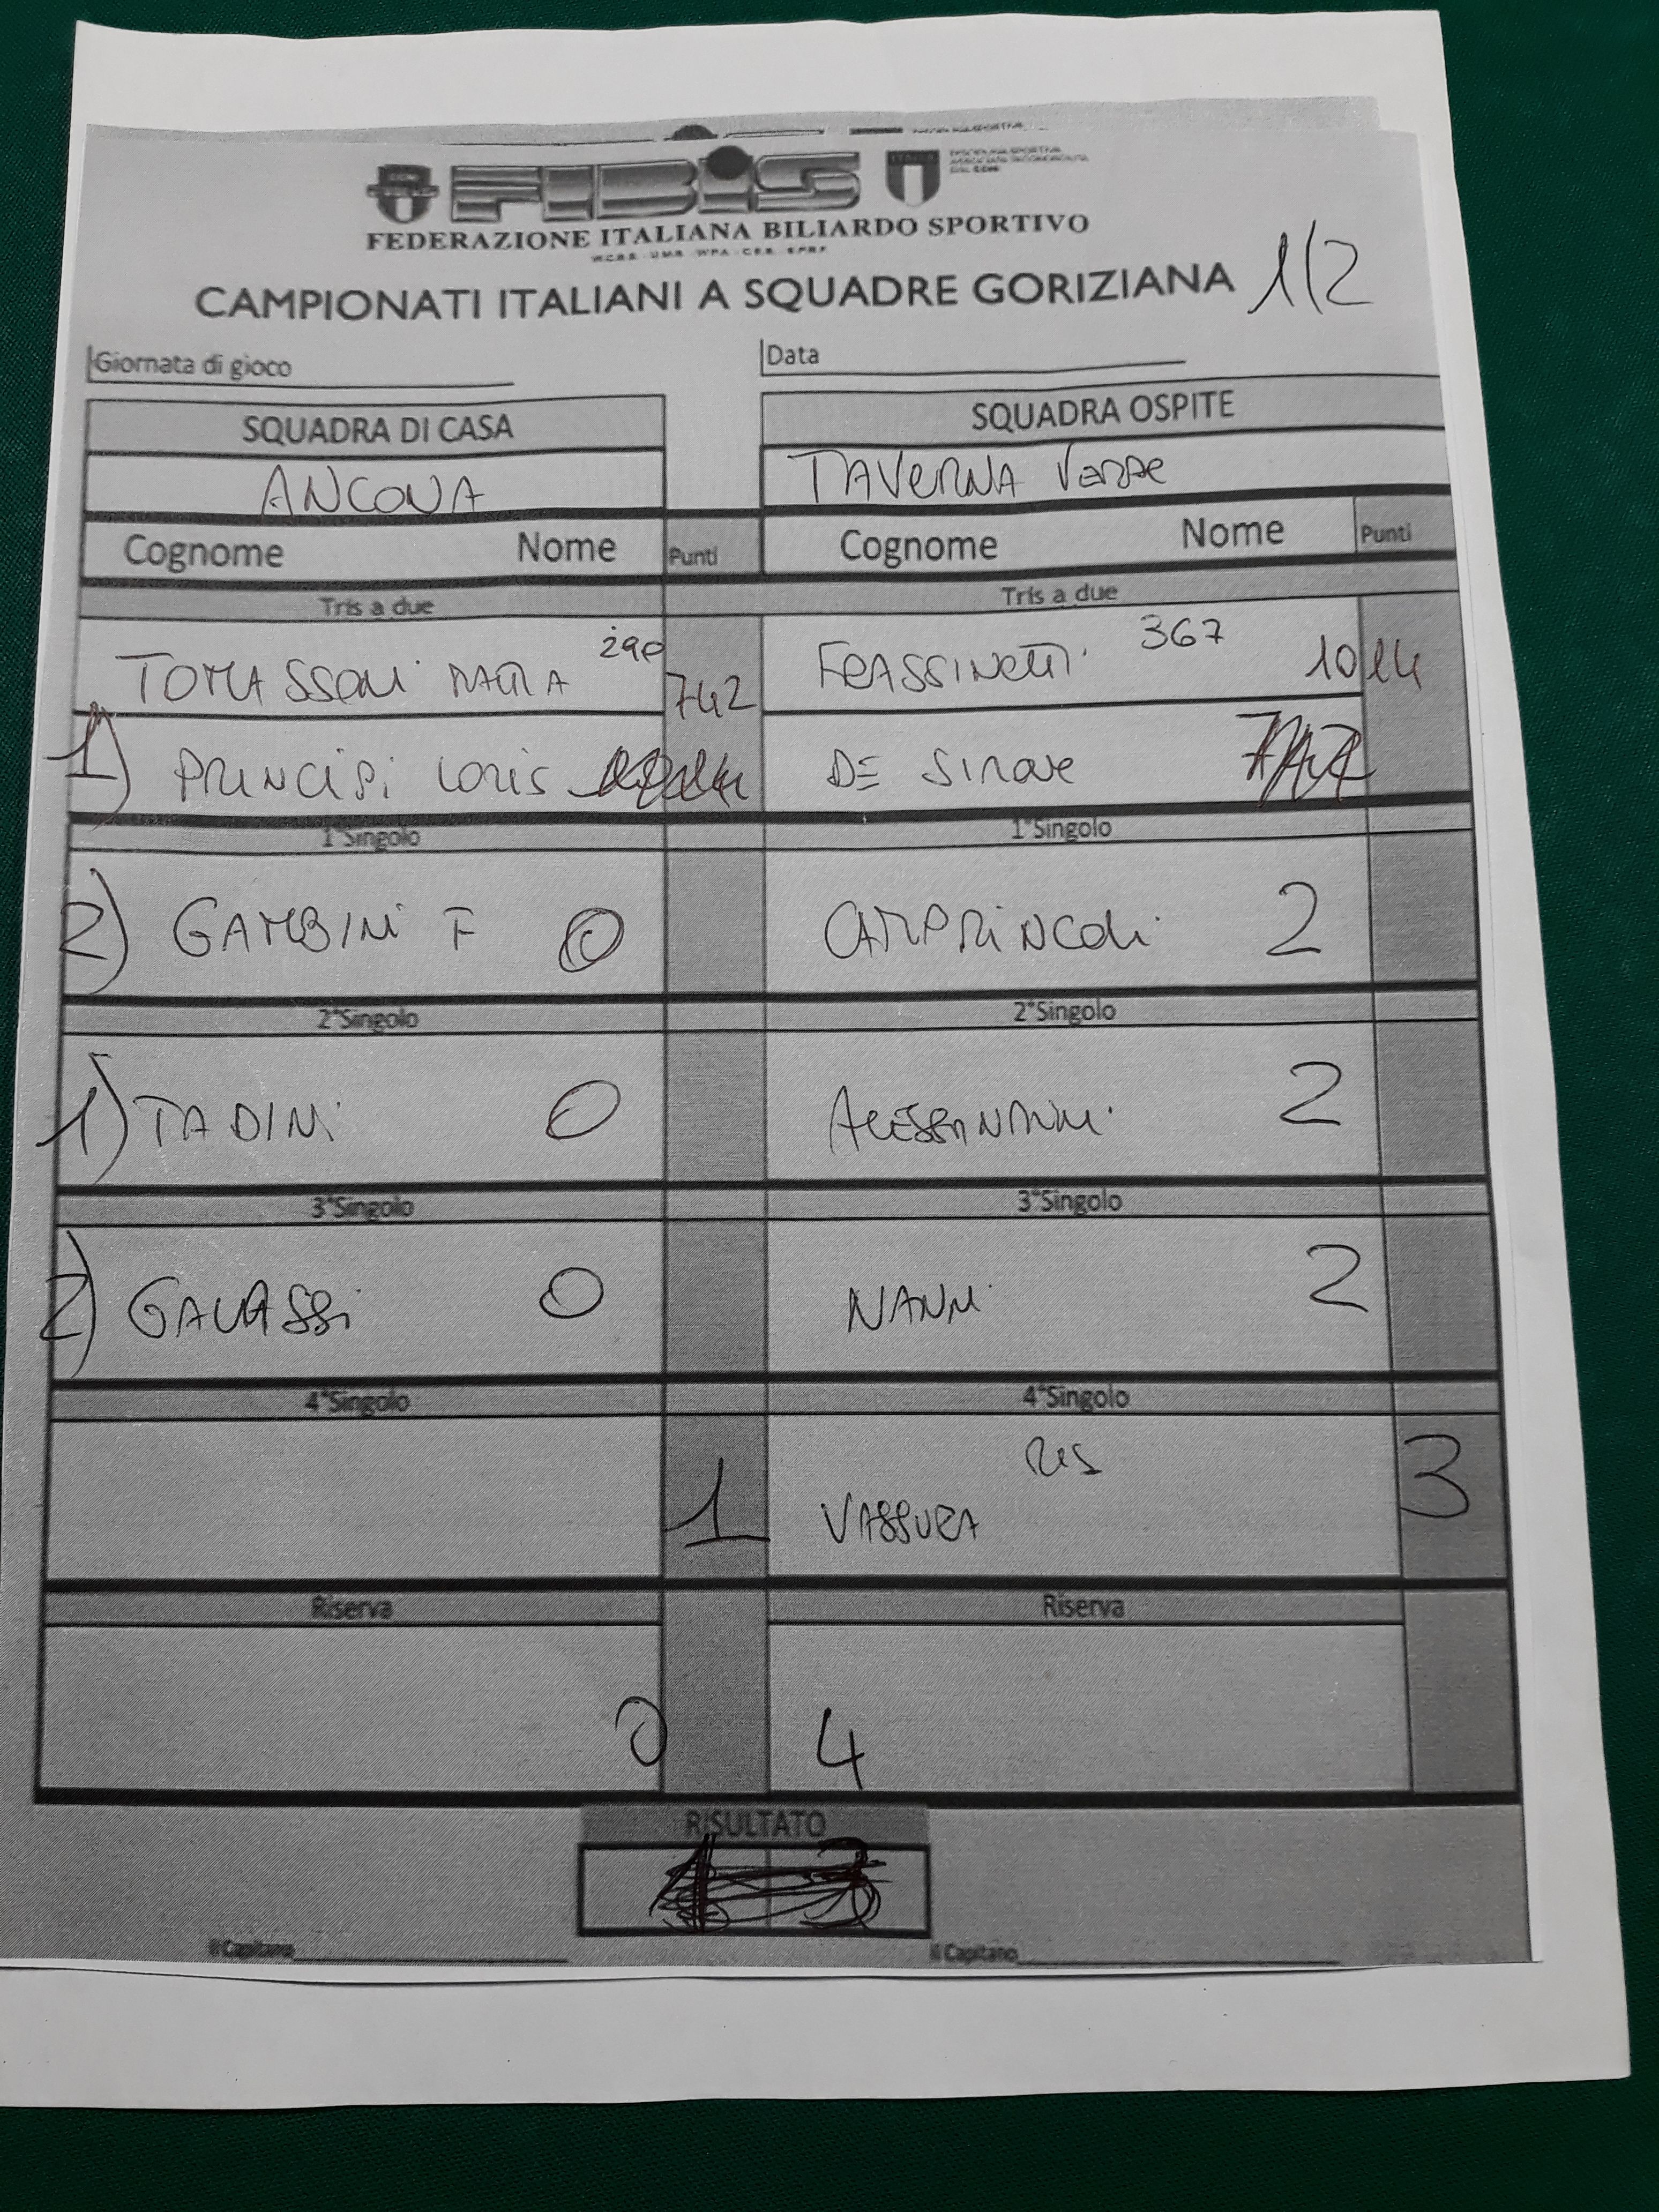 FIBiS
FEDERAZIONE ITALIANA BILIARDO SPORTIVO
CAMPIONATI ITALIANI A SQUADRE GORIZIANA 1/2
Giornata di gioco Data
SQUADRA DI CASA SQUADRA OSPITE
ANCONA TAVERNA VERDE
Cognome Nome Punti Cognome Nome Punti
Tris a due Tris a due
TOMASSONI 290 742 FRASSINETTI 367 1014
1) PRINCIPI LORIS DE SIMONE
1°Singolo 1°Singolo
2) GAMBINI F 0 CAMPRINCOLI 2
2°Singolo 2°Singolo
1) TADINI 0 ALESSANDRINI 2
3°Singolo 3°Singolo
2) GALASSI 0 NANNI 2
4°Singolo 4°Singolo
RIS
1 VASSURA 3
Riserva Riserva
0 4
RISULTATO
Il Capitano Il Capitano